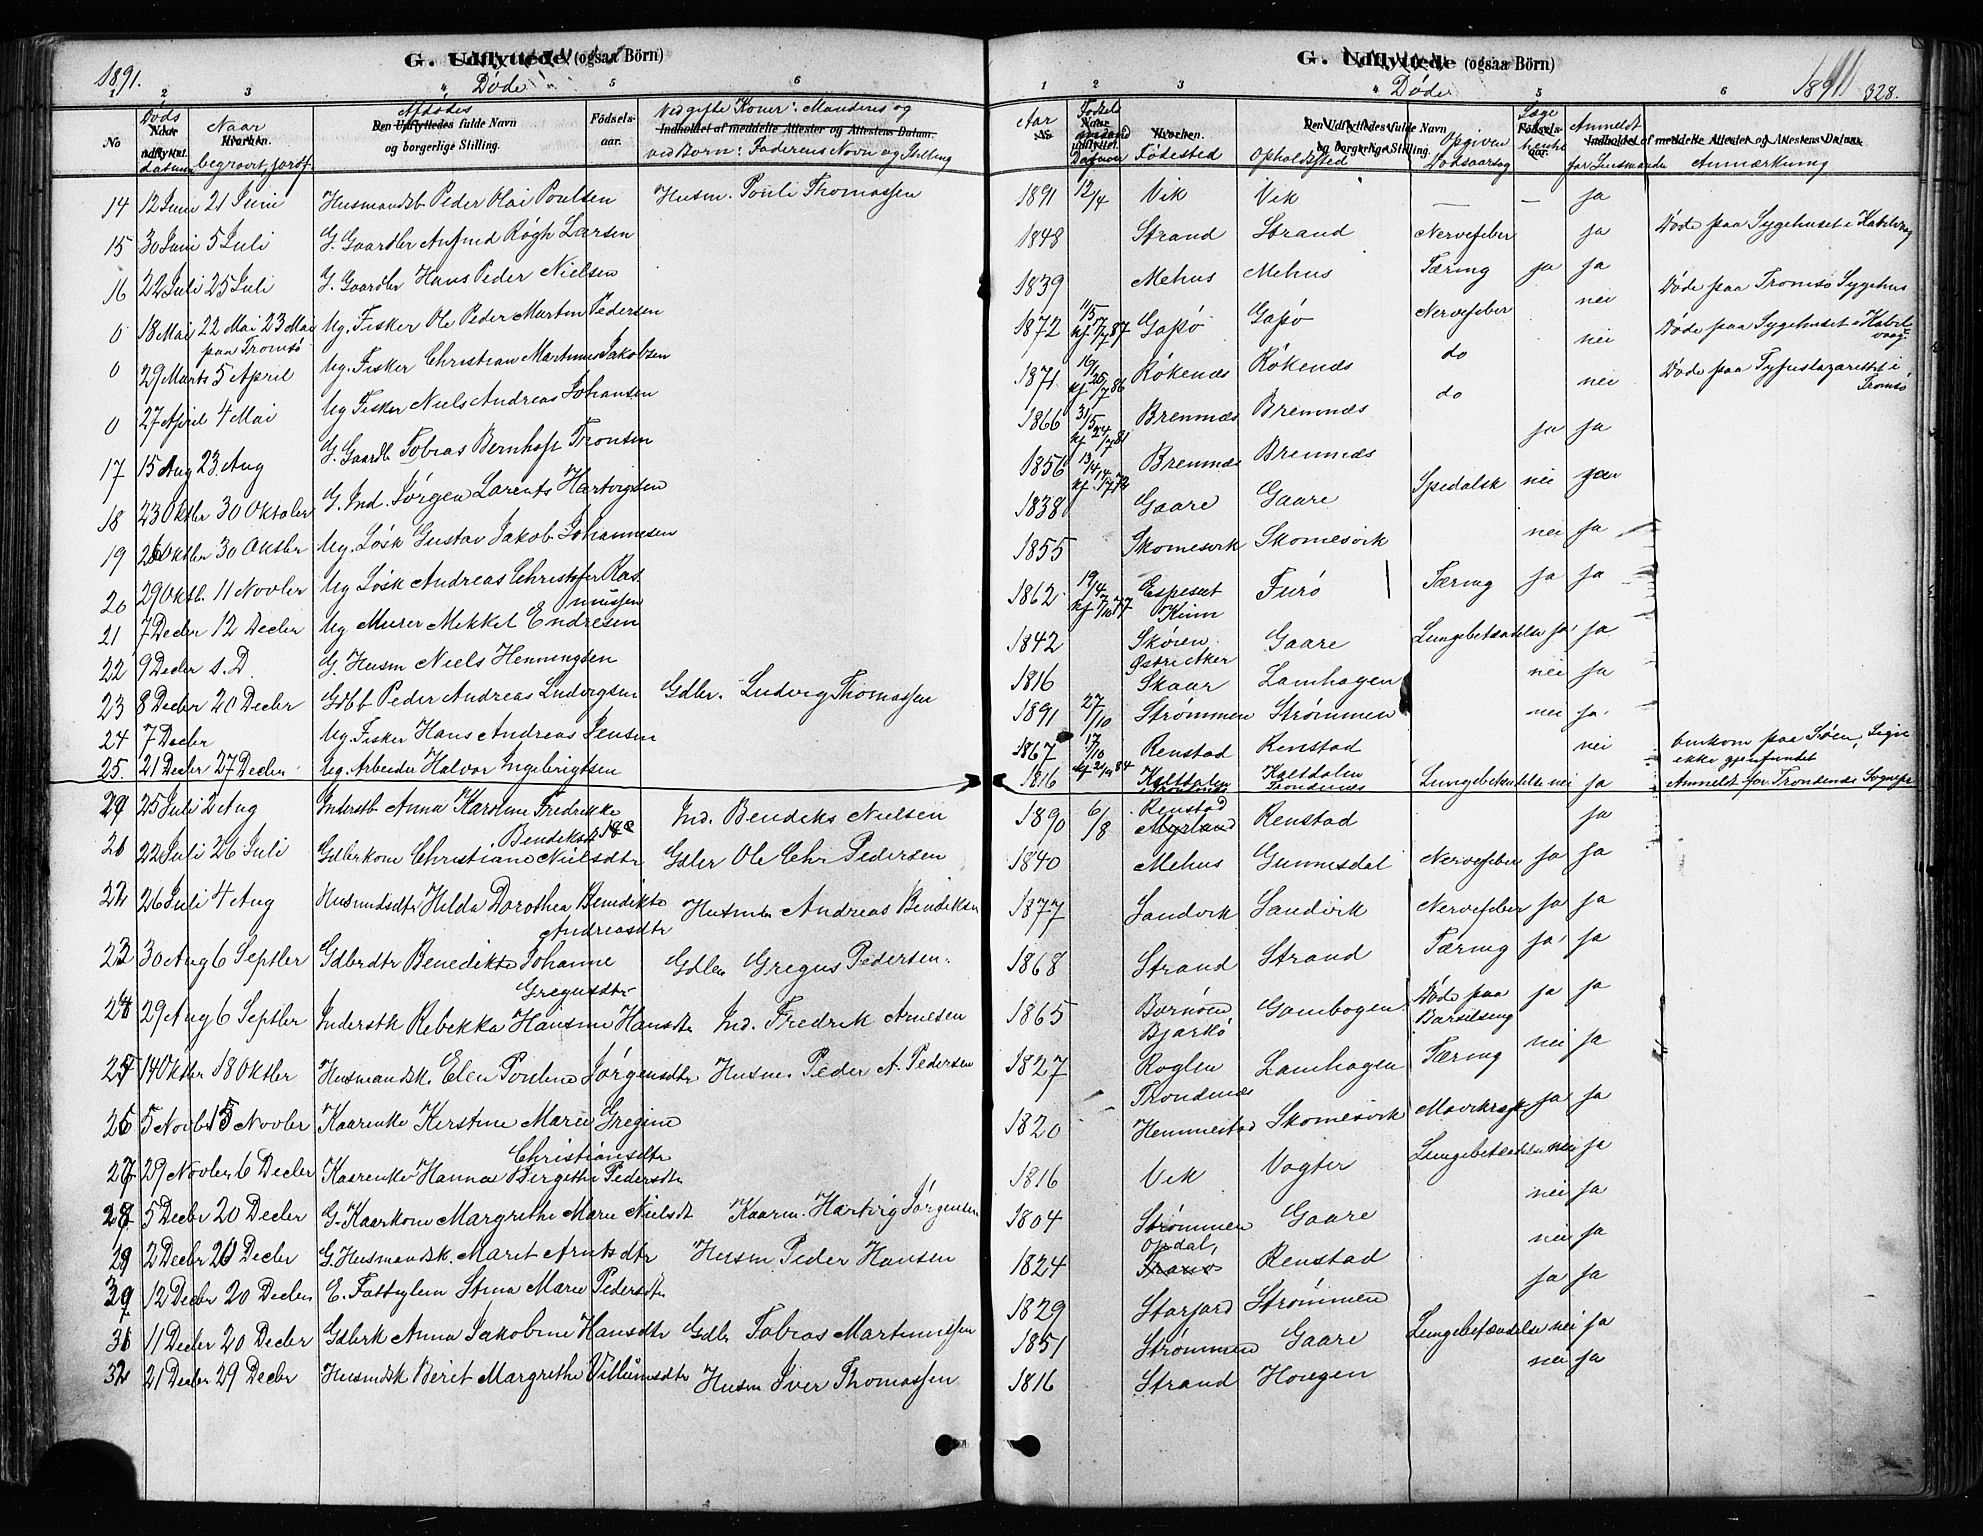 1891.
G. Udflyttede (ogsaa Börn)
Døde
1 2 3 4 5 6
No
Døds datum
Naar udflyttet.
Naar Hvorhen.
begravet, jordf.
Afdødes
Den Udflyttedes fulde Navn
og borgerlige Stilling.
Fødsels-
aar.
Ved gifte Koner: Mandens og
Indholdet af meddelte Attester og Attestens Datum.
ved Børn: Faderens Navn og Stilling
14 12 Juni 21 Juni Husmandsb Peder Olai Poulsen Husm. Pouli Thomassen
15 30 Juni 5 Juli G. Gaardbr Anfind Røgh Larsen
16 22 Juli 25 Juli G. Gaardbr Hans Peder Nielsen
0 18 Mai 22 Mai 23 Mai Ug. Fisker Ole Peder Martin Pedersen
paa Tromsø
0 29 Marts 5 April Ug. Fisker Christian Martinus Jakobsen
0 27 April 4 Mai Ug Fisker Niels Andreas Johansen
17 15 Aug 23 Aug G. Gaardb Tobias Bernhoft Tronsen
18 23 Oktbr 30 Oktober G. Ind. Jørgen Lorents Hartvigsen
19 26 Oktbr 30 Oktbr Ug. Løsk Gustav Jakob Johannesen
20 29 Oktb. 11 Novbr Ug Løsk Andreas Christofer Ras
mussen
21 7 Decbr 12 Decbr Ug Murer Mikkel Endresen
22 9 Decbr s. D. G. Husm Niels Henningsen
23 8 Decbr 20 Decbr Gdbb Peder Andreas Ludvigsen Gdbr. Ludvig Thomassen
24 7 Decbr Ug. Fisker Hans Andreas Jensen
25. 21 Decbr 27 Decbr Ug. Arbeider Halvor Ingebrigtsen
20 25 Juli 2 Aug Inderstb Anna Karoline Fredrikke Ind. Bendiks Nielsen
Bendiksd
21 22 Juli 26 Juli Gdbrkone Christiane Nielsdtr Gdbr Ole Chr Pedersen
22 26 Juli 4 Aug Husmdsdtr Hilda Dorothea Benedikte Husm Andreas Bendiksen
Andreasdtr
23 30 Aug 6 Septbr Gdbrdtr Benedikte Johanne Gdbr Gregus Pedersen.
Gregusdtr
24 29 Aug 6 Septbr Inderstk Rebekka Hansine Hansdtr Ind. Fredrik Arnesen
25 14 Oktbr 18 Oktbr Husmandsk. Elen Pouline Jørgensdtr Husm. Peder A. Pedersen
26 5 Novbr 15 Novbr Kaarenke Kerstine Marie Gregine
Christiansdtr
27 29 Novbr 6 Decbr Kaarenke Hanna Bergithe Pedersdtr
28 5 Decbr 20 Decbr G. Kaarkone Margrethe Marie Nielsdt Kaarm. Hartvig Jørgensen
29 2 Decbr 20 Decbr G. Husmandsk. Marit Arntsdtr Husm Peder Hansen
30 12 Decbr 20 Decbr E. Fattiglem Stina Marie Pedersdtr
31 11 Decbr 20 Decbr Gdbrk Anna Jakobine Hansdtr Gdbr Tobias Martinussen
32 21 Decbr 29 Decbr Husmdsk Berit Margrethe Villumsdtr Husm Iver Thomassen
G. Udflyttede (ogsaa Börn)
Døde
1891 328.
1 2 3 4 5 6
Aar
No.
Naar udflyttet.
Hvorhen.
Fødested
Den Udflyttedes fulde Navn
og borgerlige Stilling.
Opholdssted
Opgiven
Dødsaarsag
Læge
Fødsels-
aar.
Anmeldt
for Lensmanden
Indholdet af meddelte Attester og Attestens Datum.
Anmærkning
1891 12/4 Vik Vik — — ja
1848 Strand Strand Nervefeber ja Døde paa Sygehuset i Kabelvaag
1839 Mehus Mehus Tæring ja ja
1872 11/5 kf. 17/7 87 Gapø Gapø Nervefeber nei Døde paa Tromsø Sygehus
1871 16/1 kf. 25/7 86 Røkenæs Røkenæs do nei Døde paa Sygehuset i Kabel-
vaag
1866 31/5 kf 24/7 81 Bremnæs Bremnæs do nei Døde paa Tyfuslazarettet i
Tromsø
1856 13/4 kf. 14/7 72 Bremnæs Bremnæs ja ja
1838 Gaare Gaare Spedalsk nei ja
1855 Skomesvik Skomesvik nei ja
1862 19/4 kf 7/10 77 Espesæt Furø Tæring ja ja
Kim
1842 Skøien Gaare Lungebetændelse ja ja
Østre Aker
1816 Skaar Lamhagen nei ja
1891 27/10 Strømmen Strømmen nei ja
1867 17/10 kf 21/9 84 Renstad Renstad nei Omkom paa Søen, Liget
ikke gjenfundet
1816 Kaltdalen Kaltdalen Lungebetændelse nei ja Anmeldt for Trondenæs Sognepr
Trondenæs
1890 6/8 Renstad Renstad ja
Myrland
1840 Mehus Gunnesdal Nervefeber ja ja
1877 Sandvik Sandvik Nervefeber ja ja
1868 Strand Strand Tæring ja ja
1865 Bornøen Gambogen Døde paa ja ja
Bjarkø Barselseng
1827 Roglen Lamhagen Tæring nei ja
Trondenæs
1820 Hemmestad Skomesvik Mavekræft ja ja
1816 Vik Vogter Lungebetændelse nei ja
1804 Strømmen Gaare nei ja
1824 Opdal, Renstad nei ja
1829 Storjord Strømmen ja ja
1851 Strømmen Gaare Lungebetændelse nei ja
1816 Strand Hougen nei ja